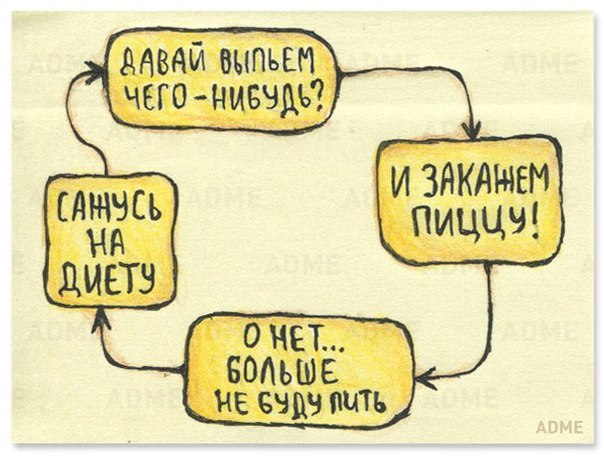 ДАВАЙ ВЫПЬЕМ
ЧЕГО-НИБУДЬ?
И ЗАКАЖЕМ
ПИЦЦУ!
О НЕТ...
БОЛЬШЕ
НЕ БУДУ ПИТЬ
САЖУСЬ
НА
ДИЕТУ
ADME